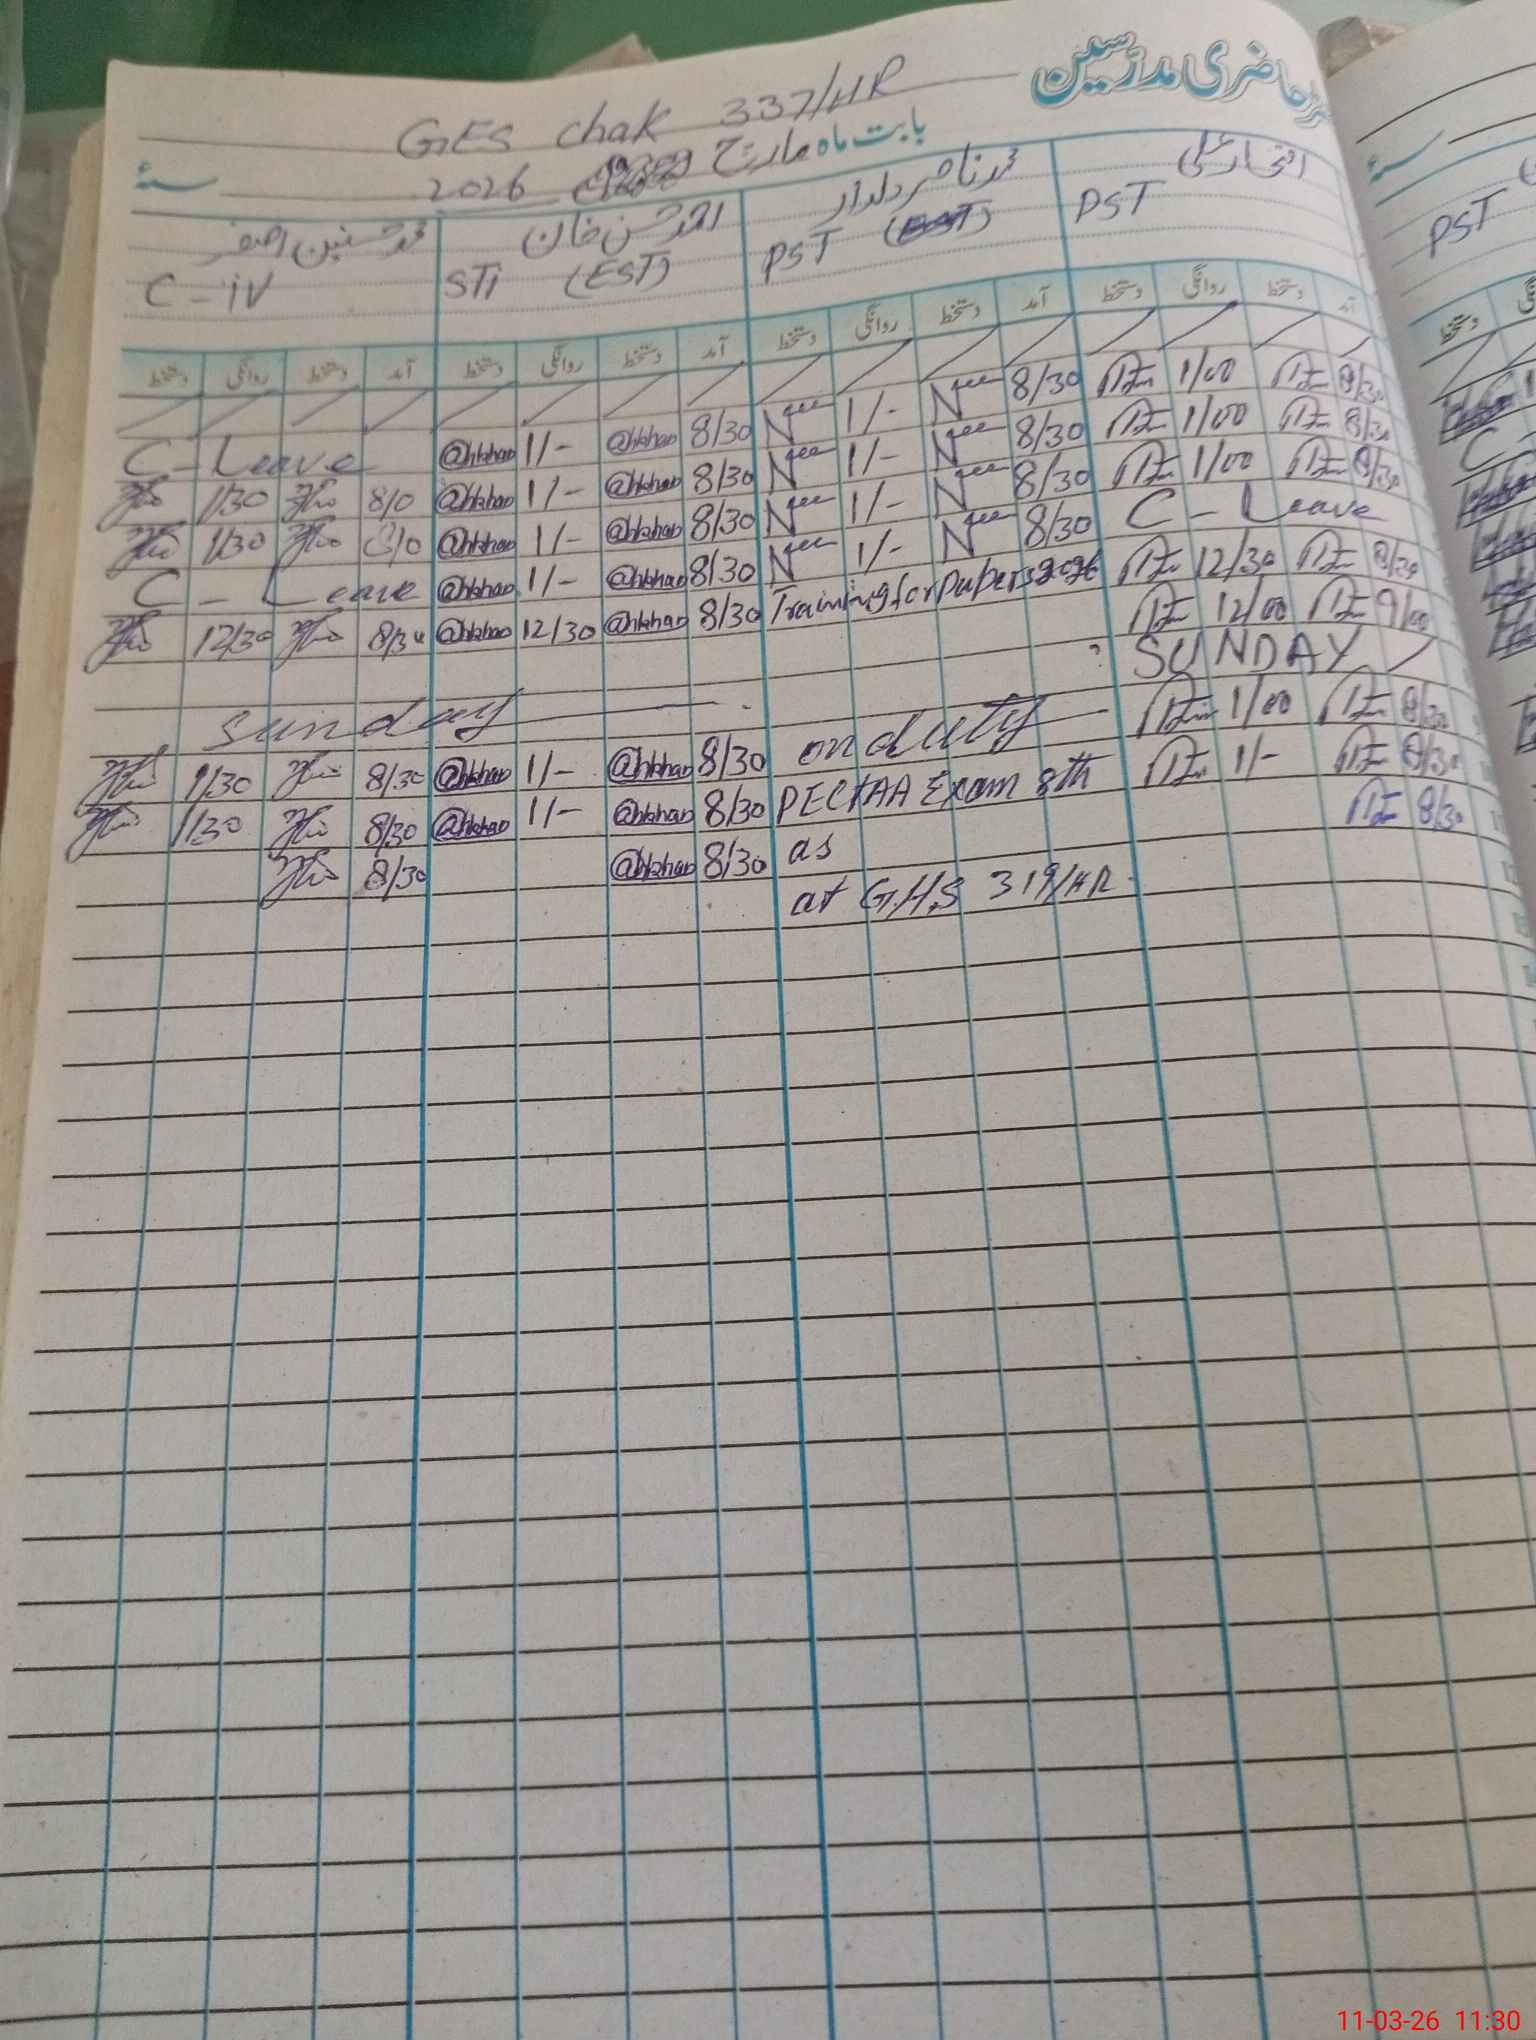 حاضری مدرسین
GES Chak 337/HR
بابت ماہ مارچ 2026 سنہ
افتخار علی
PST
محمد ناصر دلدار
PST (EST)
احمد حسن خان
STi (EST)
محمد حسنین اصغر
C - iV
PST
آمد دستخط روانگی دستخط آمد دستخط روانگی دستخط آمد دستخط روانگی دستخط آمد دستخط روانگی دستخط
C - Leave @hkhan 1/- @hkhan 8/30 1/- 8/30 1/00 8/30
1/30 8/0 @hkhan 1/- @hkhan 8/30 1/- 8/30 1/00 8/30
1/30 8/0 @hkhan 1/- @hkhan 8/30 1/- 8/30 1/00 8/30
C - Leave @hkhan 1/- @hkhan 8/30 1/- 8/30 C - Leave
12/30 8/30 @hkhan 12/30 @hkhan 8/30 Training for papers 2026 12/30 8/30
12/00 9/00
Sunday SUNDAY
1/30 8/30 @hkhan 1/- @hkhan 8/30 on duty 1/00 8/30
1/30 8/30 @hkhan 1/- @hkhan 8/30 PECTAA Exam 8th 1/- 8/30
8/30 @hkhan 8/30 as 8/30
at G.H.S 319/HR
11-03-26 11:30